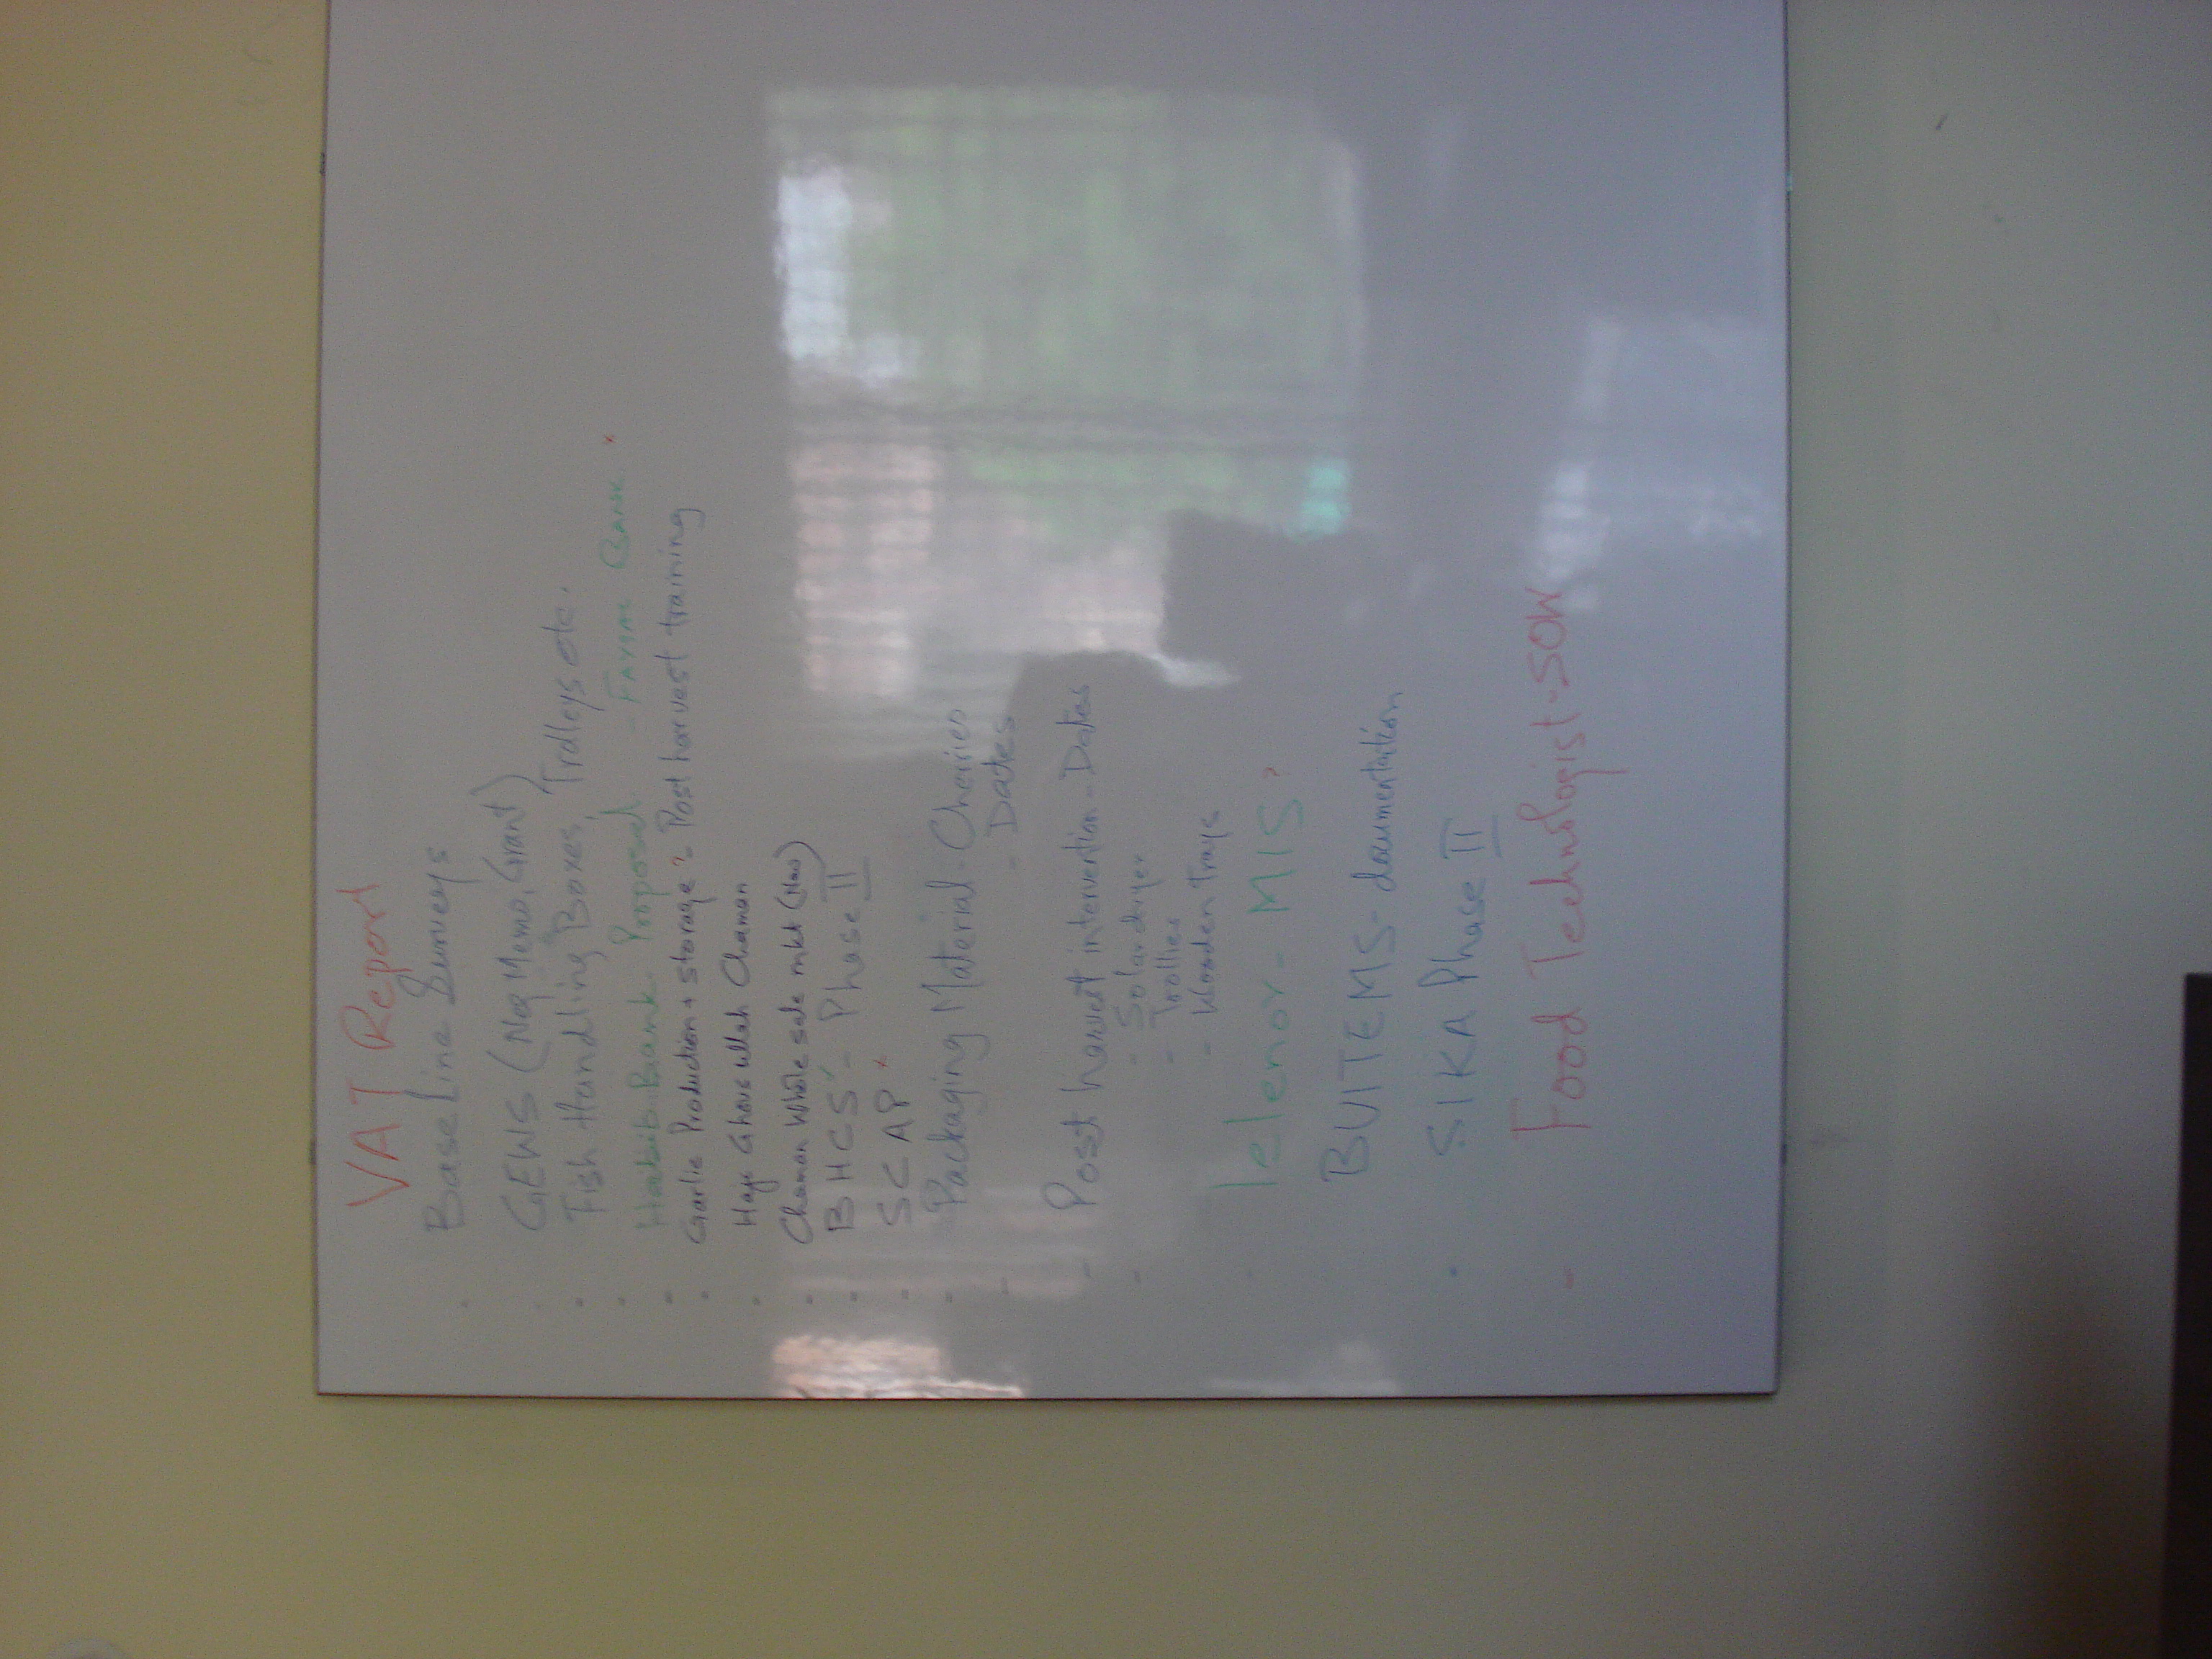 VAT Report
Base Line Surveys
GEWS (Neg Memo, Grant)
Fish Handling Boxes, Trolleys etc.
HabibBank Proposal - FAYSAL BANK x
Garlic Production + storage? - Post harvest training
Haji Ghous ullah Chaman
Chaman Whole sale mkt (New)
BHCS - Phase II
SCAP x
Packaging Material - Cherries
- Dates
Post harvest intervention - Dates
- Solar dryer
- Trollies
- Wooden Trays
Telenor - MIS ?
BUITEMS - documentation
SIKA Phase II
- Food Technologist - SOW